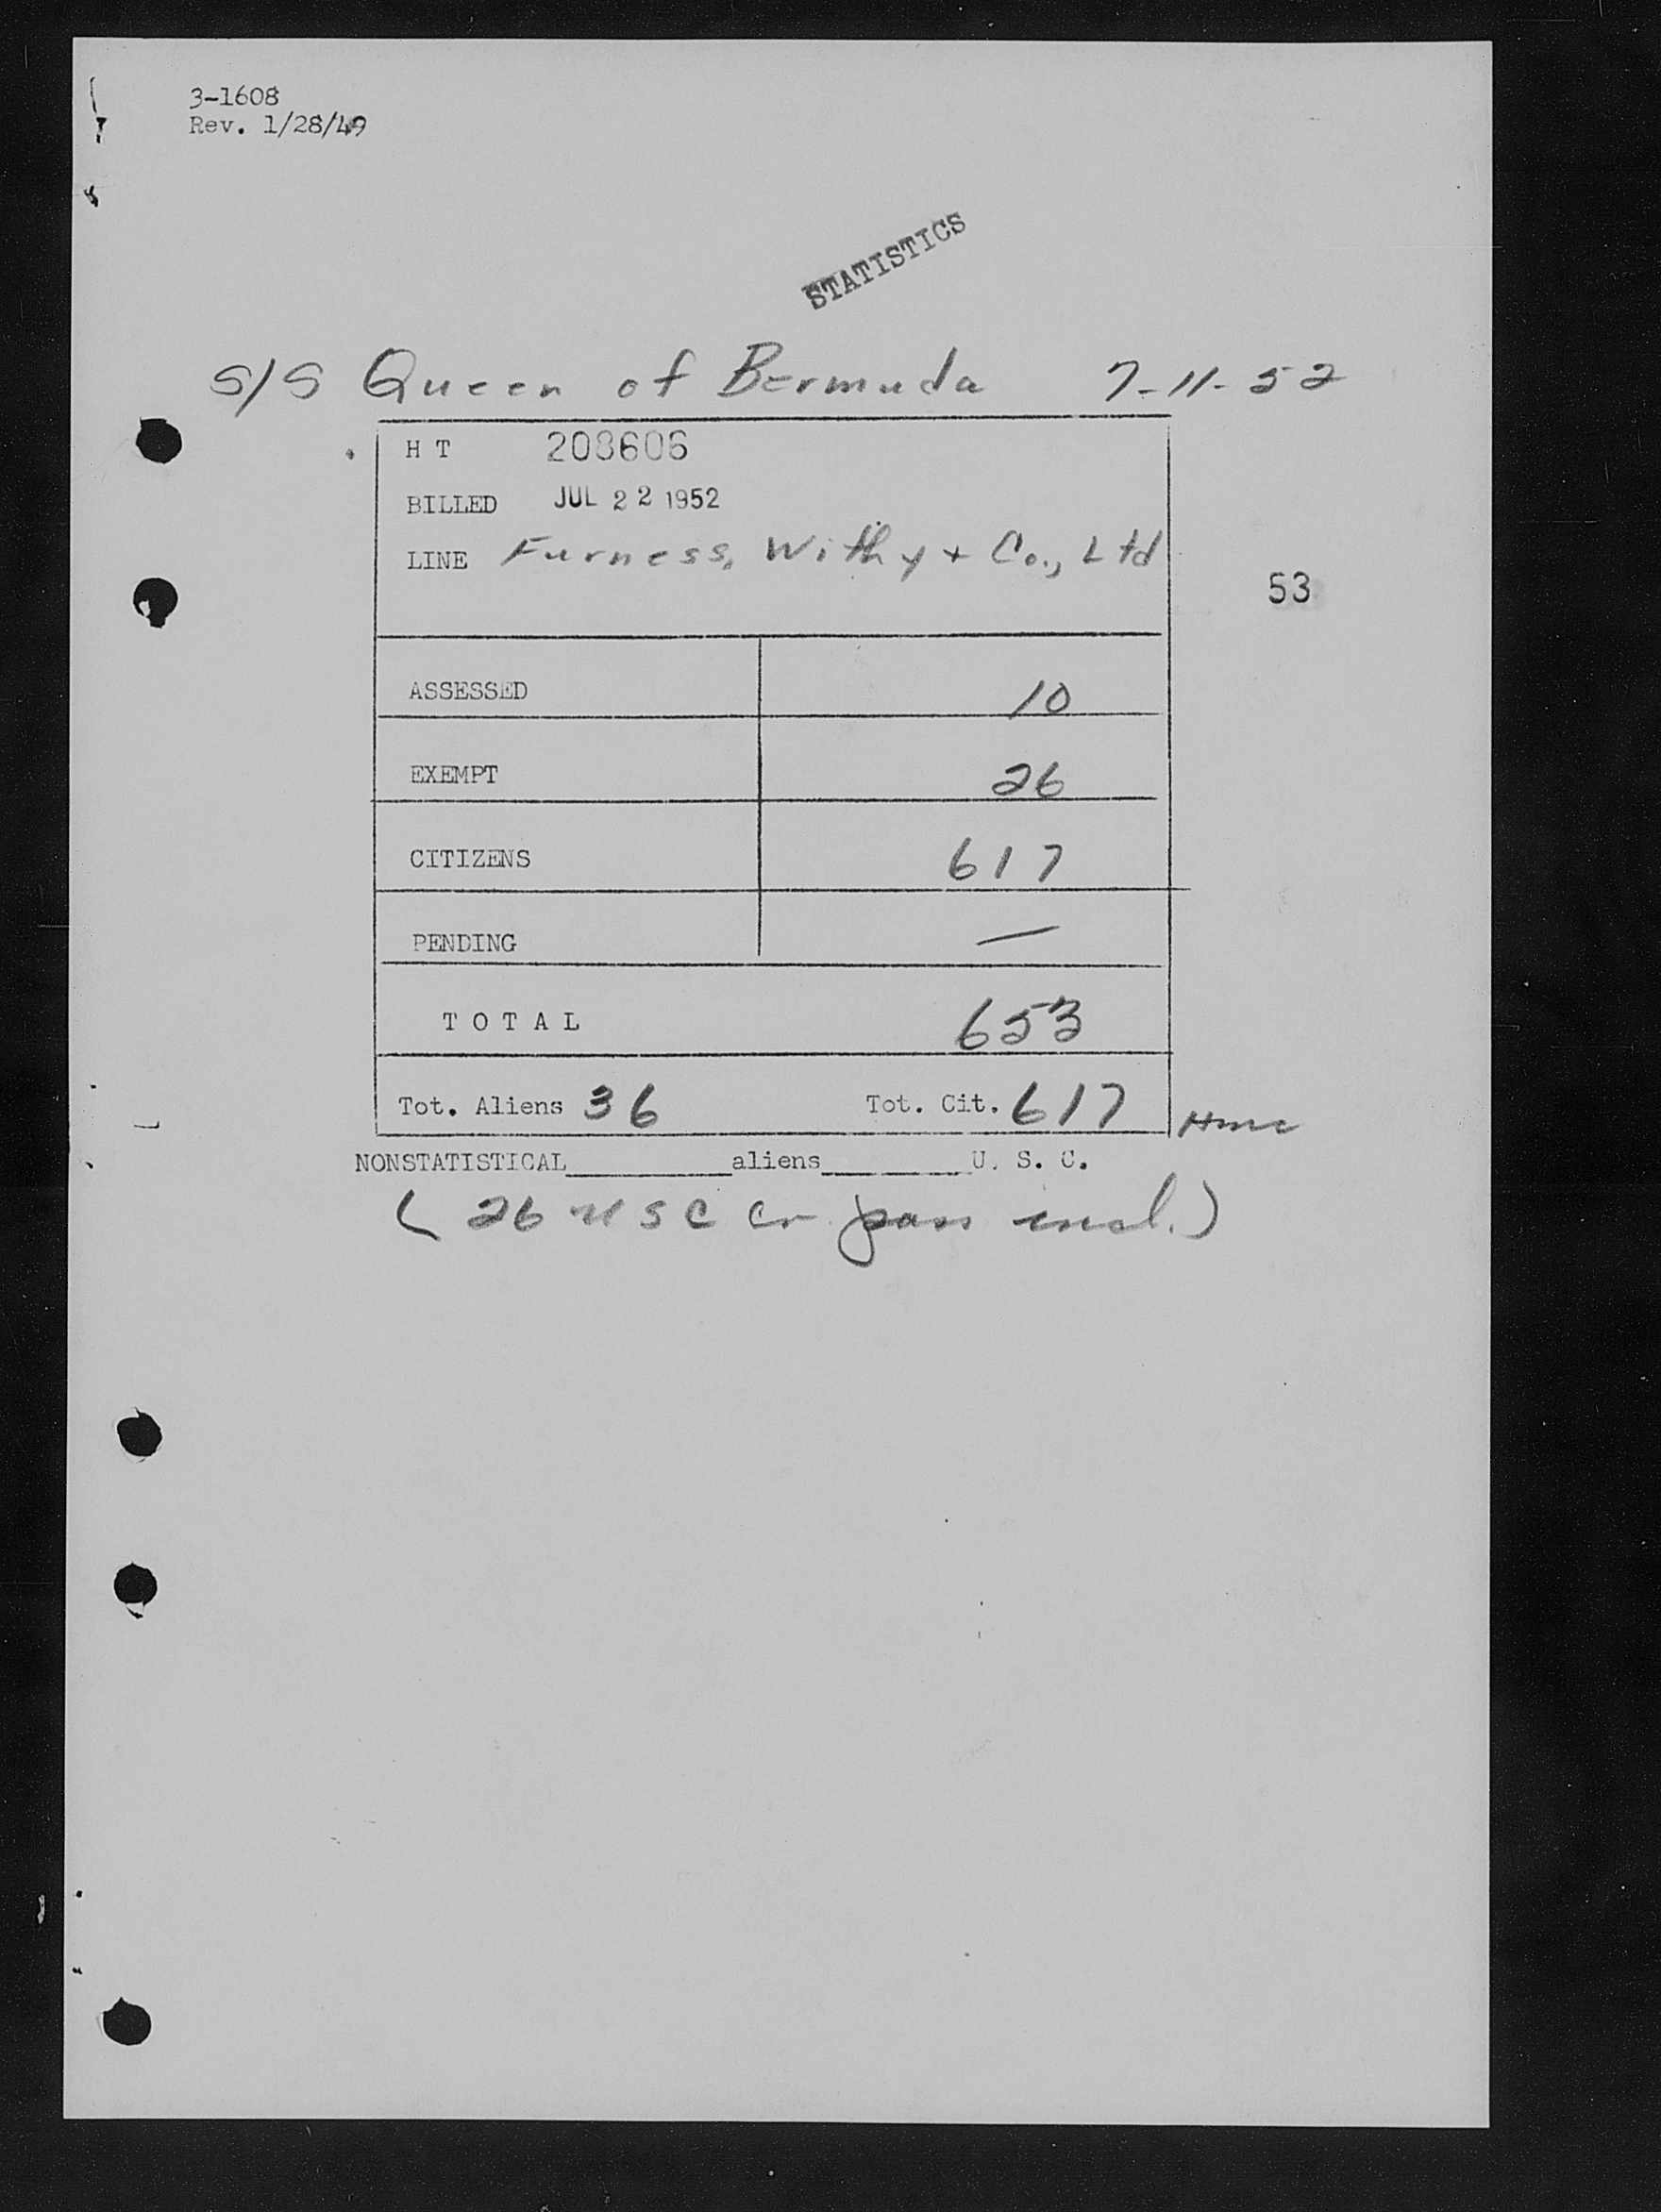 3-1608
Rev. 1/28/49
STATISTICS
S/S Queen of Bermuda 7-11-52
H T 208606
BILLED JUL 22 1952
LINE Furness, Withy + Co., Ltd
53
ASSESSED 10
EXEMPT 26
CITIZENS 617
PENDING —
TOTAL 653
Tot. Aliens 36 Tot. Cit. 617
NONSTATISTICAL__________aliens__________U. S. C.
( 26 USC Cr. pass incl. )